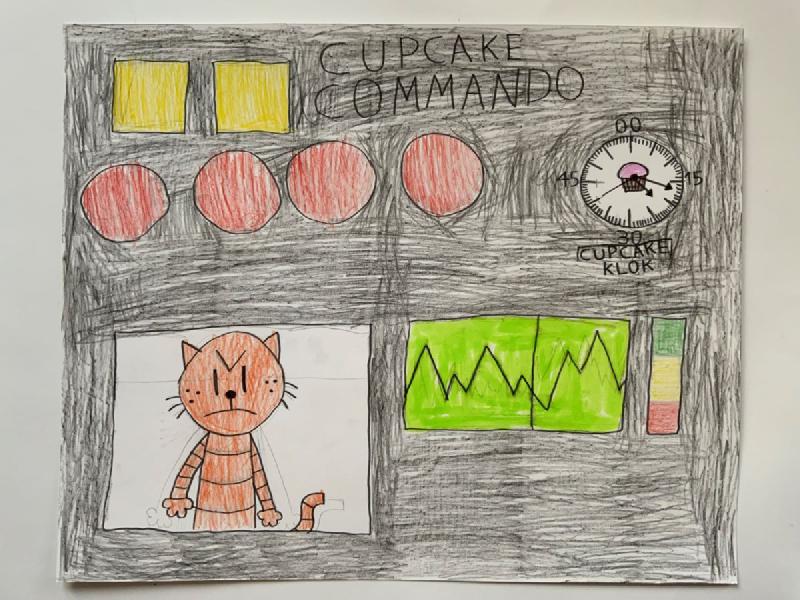 CUPCAKE
COMMANDO
00
45
15
30
CUPCAKE
KLOK